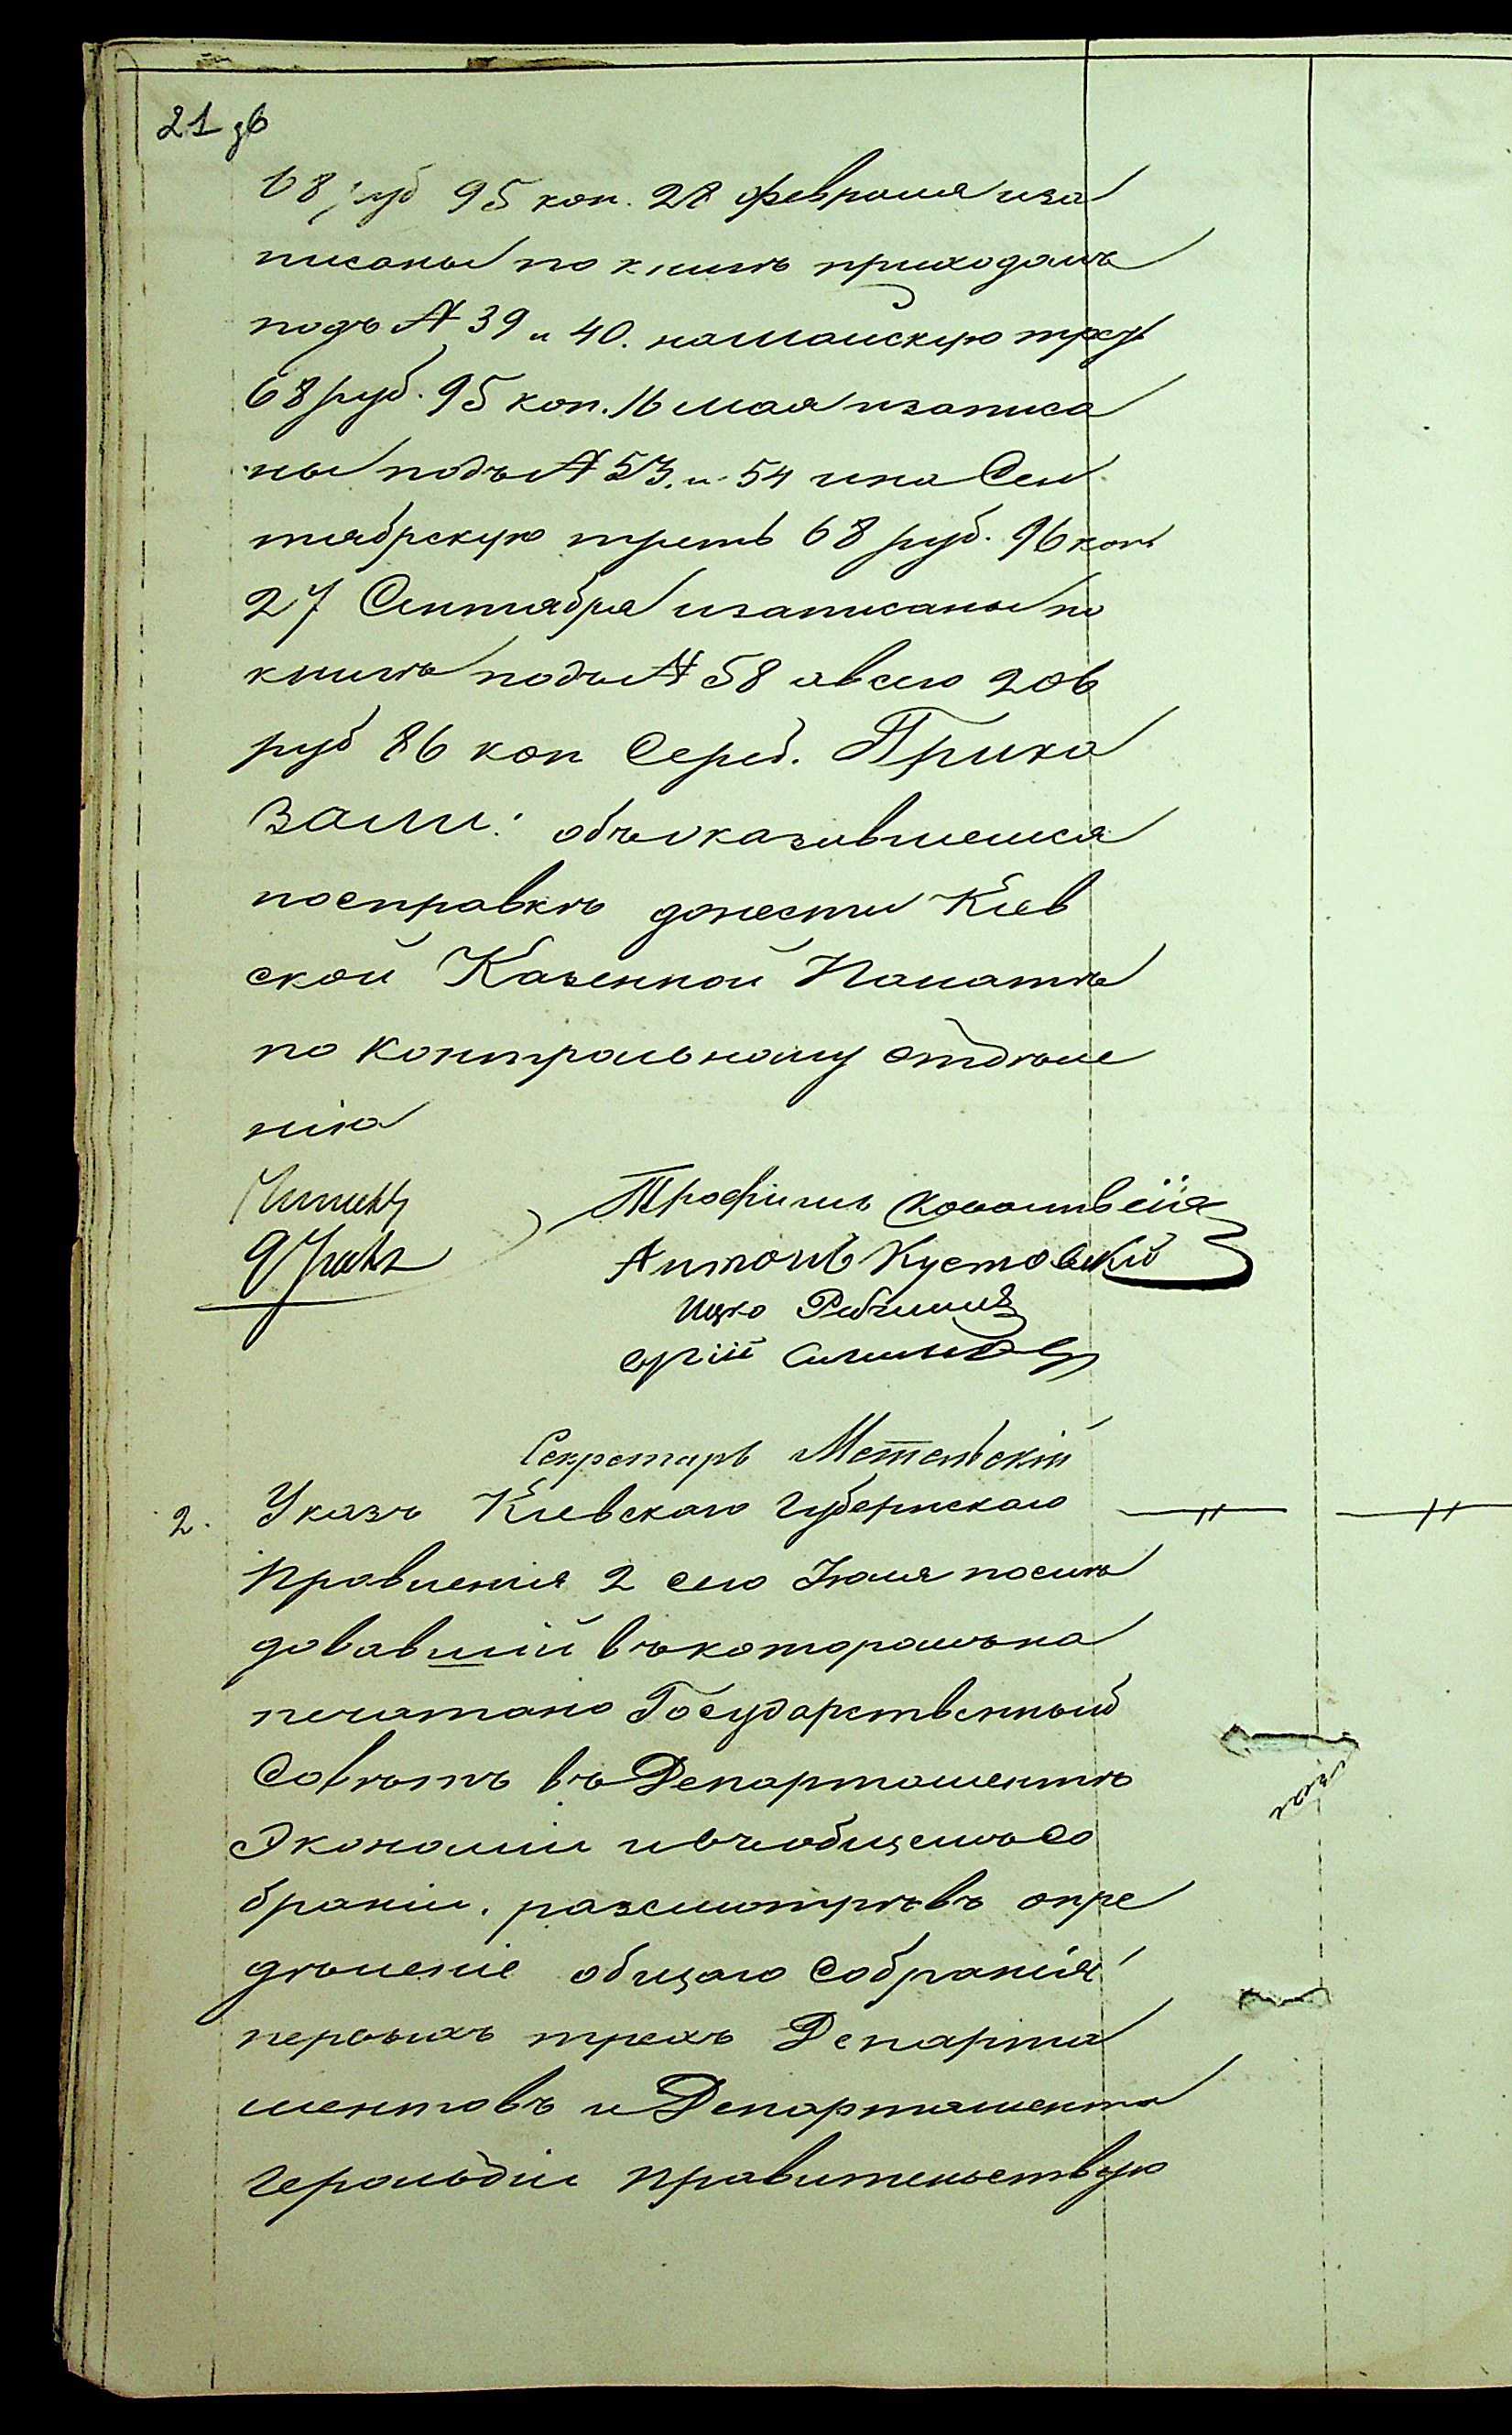 21 зв
68 руб 95 коп. 28 февраля иза
писаны по книгѣ приходомъ
подъ № 39 и 40. на Майскую треть
68 руб. 95 коп. 16 мая изаписа
ны подъ № 53. и 54 и на Сен
тябрскую треть 68 руб. 96 коп
27 Сентября изаписаны по
книгѣ подъ № 58 а всего 206
руб 86 коп Сереб. Прика
зали: объ оказавшемся
по справкѣ донести Кіев
ской Казенной Палатѣ
по Контрольному Отдѣле
нію
Трофимъ
Антонъ Кустовскій
Ицко
Секретарь Метельскій
2. Указъ Кіевскаго Губернскаго
Правленія 2 сего Іюля послѣ
довавшій въ которомъ на
печатано Государственный
Совѣтъ въ Департаментѣ
Экономіи и въ общемъ Со
браніи. разсмотрѣвъ опре
дѣленіе общаго Собранія
первыхъ трехъ Департа
ментовъ и Департамента
Герольдіи Правительствую